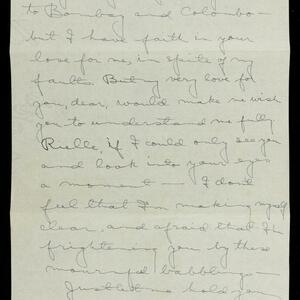 to Bombay and Colombo—
but I have faith in your
love for me, in spite of my
faults. But my very love for
you, dear, would make me wish
you to understand me fully
Rielle, if I could only see you
and look into your eyes
a moment — I don't
feel that I'm making myself
clear, and afraid that I'm
frightening you by these
mournful babblings—
Just let me hold you